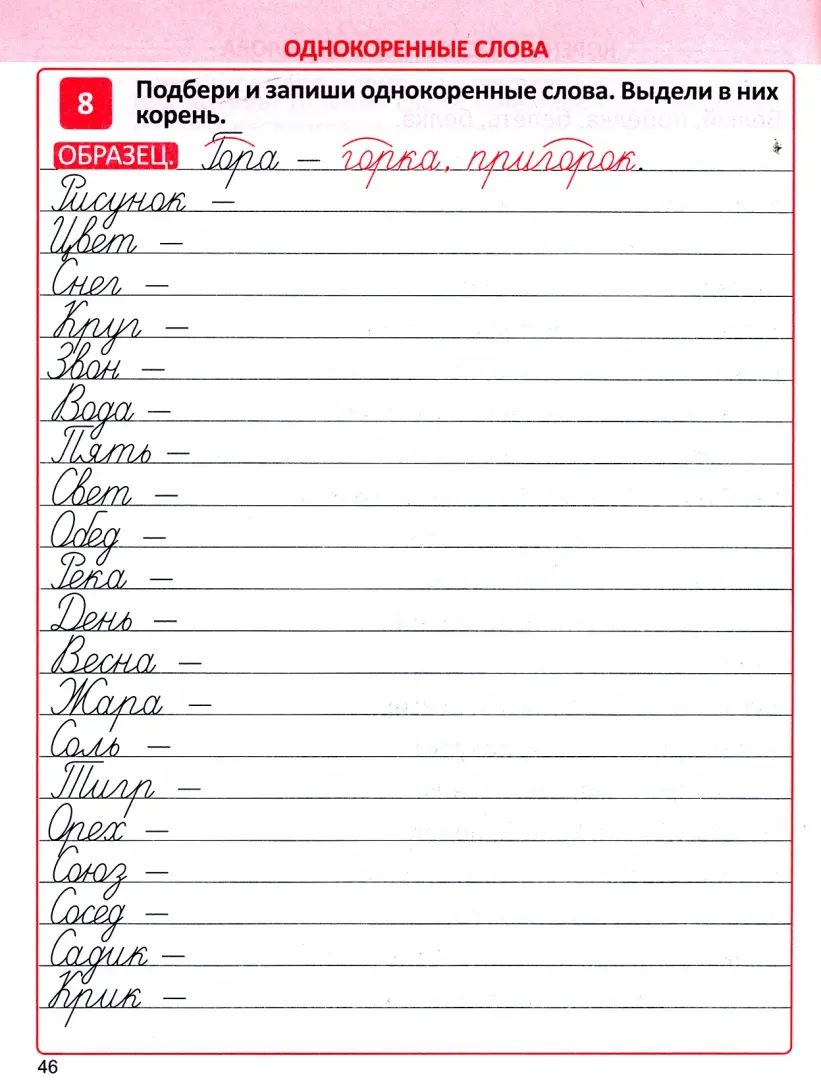 ОДНОКОРЕННЫЕ СЛОВА
8
Подбери и запиши однокоренные слова. Выдели в них
корень.
ОБРАЗЕЦ. Гора — горка, пригорок.
Рисунок —
Цвет —
Снег —
Круг —
Звон —
Вода —
Пять —
Свет —
Обед —
Река —
День —
Весна —
Жара —
Соль —
Тигр —
Орех —
Союз —
Сосед —
Садик —
Крик —
46